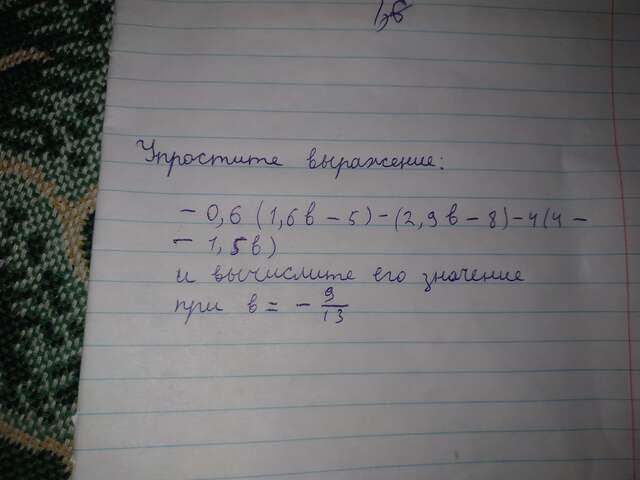 1,6
Упростите выражение:
- 0,6 (1,6в - 5) - (2,9в - 8) - 4(4 -
- 1,5в)
и вычислите его значение
при в = - 9/13